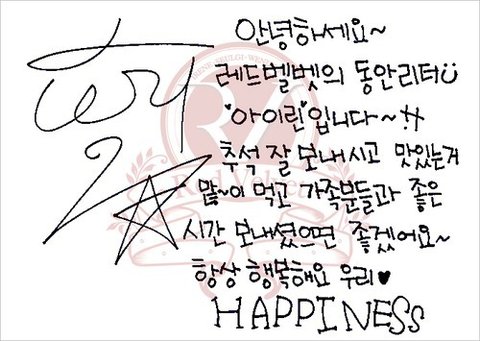 안녕하세요~
레드벨벳의 동안리더
'아이린'입니다~!!
추석 잘 보내시고 맛있는거
많~이 먹고 가족분들과 좋은
시간 보내셨으면 좋겠어요~
항상 행복해요 우리♥
HAPPINESS